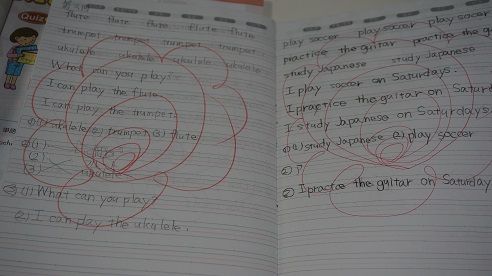 Quiz
flute flute flute flute flute
trumpet trumpet trumpet trumpet
ukulele ukulele ukulele ukulele
What can you play?
I can play the flute.
I can play the trumpet.
① (1) ukulele (2) trumpet (3) flute
② (1)
(2)
(3) ukulele
③ (1) What can you play?
(2) I can play the ukulele.
play soccer play soccer play soccer
practice the guitar practice the g
study Japanese study Japanese
I play soccer on Saturdays.
I practice the guitar on Saturd
I study Japanese on Saturdays
① (1) study Japanese (2) play soccer
② P
② I practice the guitar on Saturday